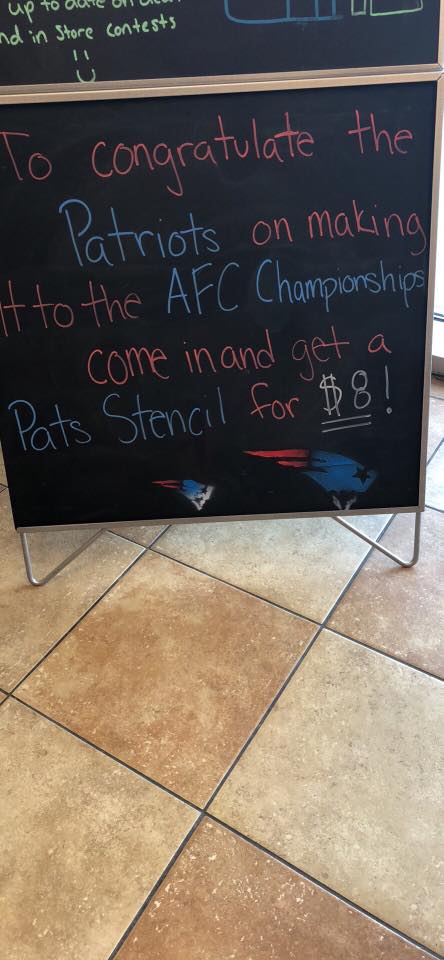 up to date on
nd in Store contests
To congratulate the
Patriots on making
It to the AFC Championships
come in and get a
Pats Stencil for $8!